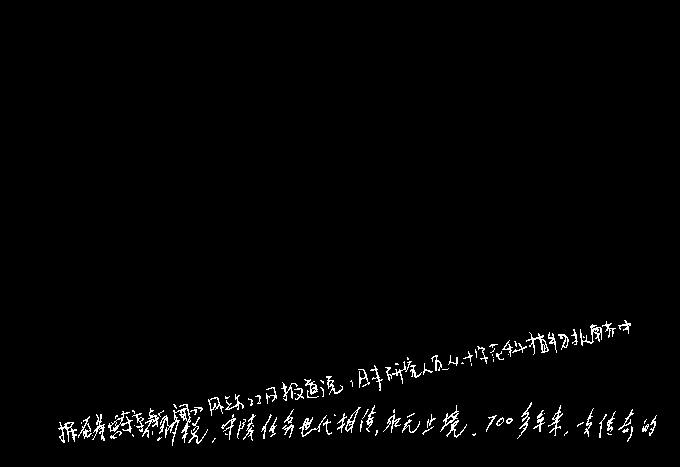 网站22日报道说，日本研究人员从十字花科植物拟南芥中
守陵任务世代相传，永无止境。700多年来，一支传奇的